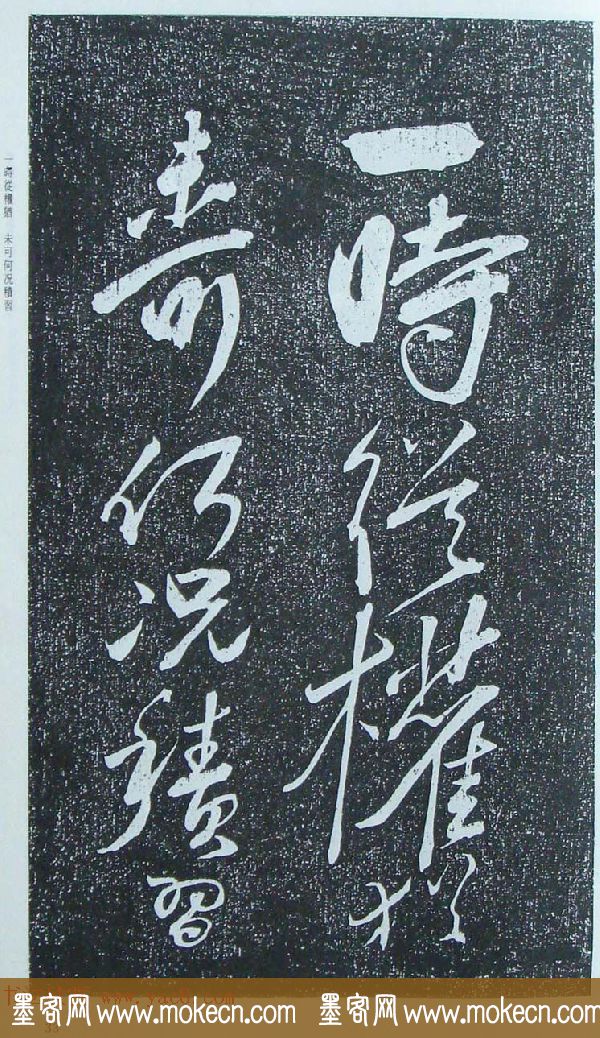 一時從權猶
未可何況積習
一時從權猶 未可何况積習
墨客网 www.mokecn.com 墨客网 www.mokecn.com
33